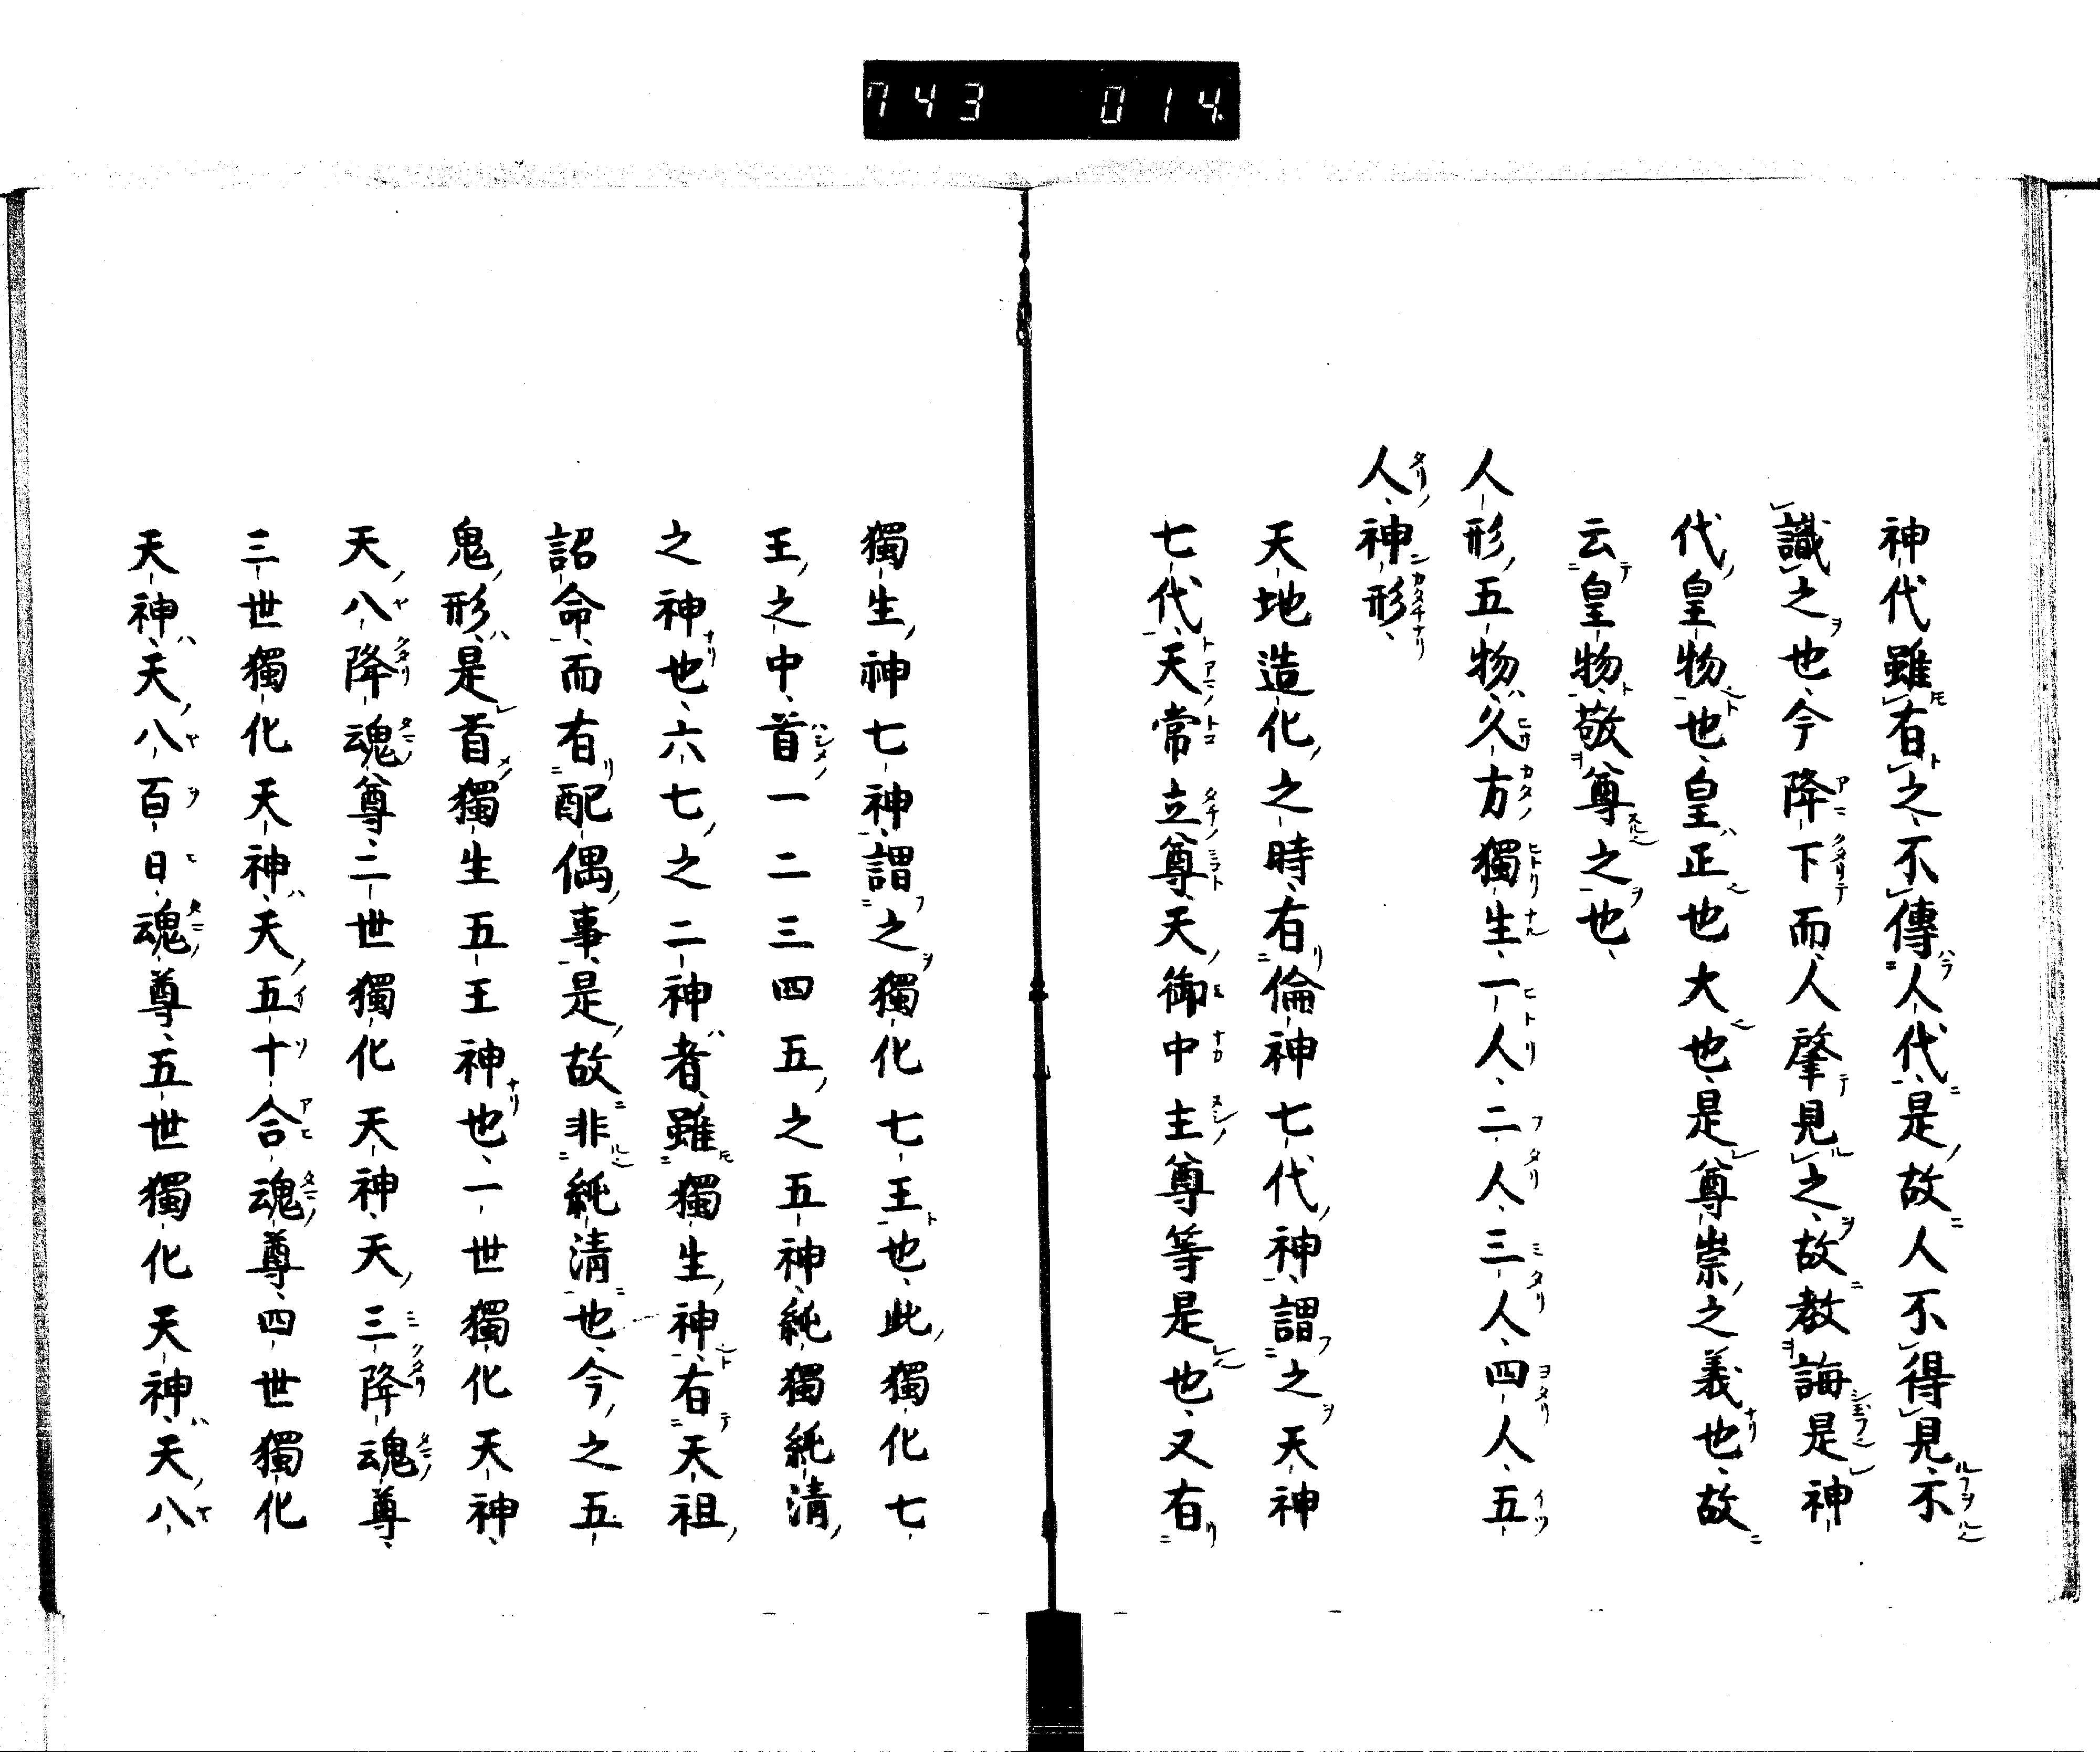 743 014.
神代雖有之不傳人代是故人不得見不
識之也今降下而人肇見之故教誨是神
代皇物也皇正也大也是尊崇之義也故
云皇物敬尊之也
人形五物久方獨生一人二人三人四人五
人神形
天地造化之時有倫神七代神謂之天神
七代天常立尊天御中主尊等是也又有
獨生神七神謂之獨化七王也此獨化七
王之中首一二三四五之五神純獨純清
之神也六七之二神者雖獨生神有天祖
詔命而有配偶事是故非純清也今之五
鬼形是首獨生五王神也一世獨化天神
天八降魂尊二世獨化天神天三降魂尊
三世獨化天神天五十合魂尊四世獨化
天神天八百日魂尊五世獨化天神天八